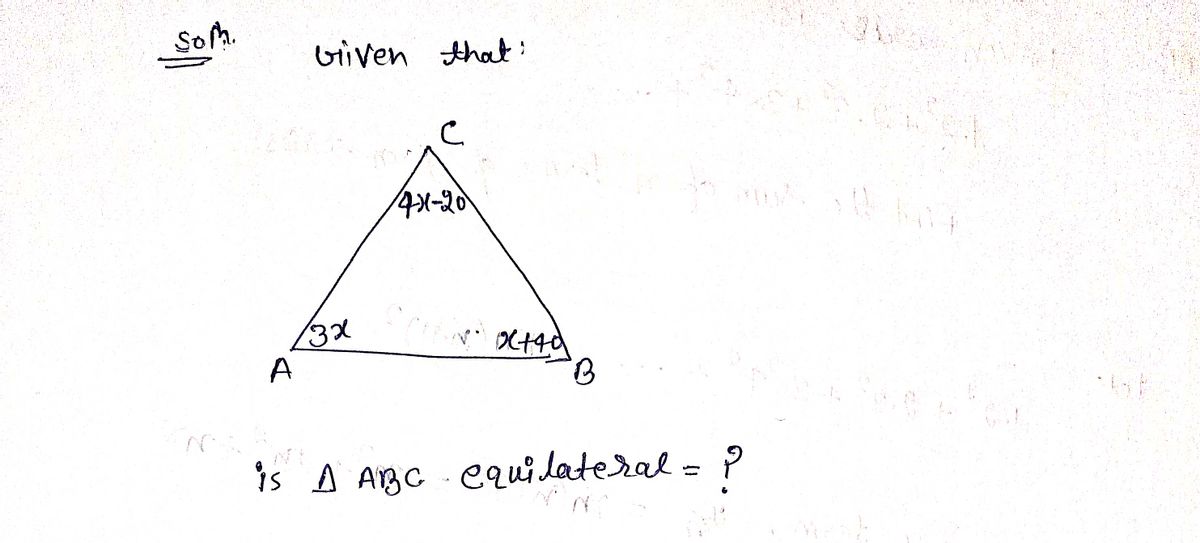 Soln.
Given that:
C
4x-20
3x
x+40
A
B
is Δ ABC equilateral = ?